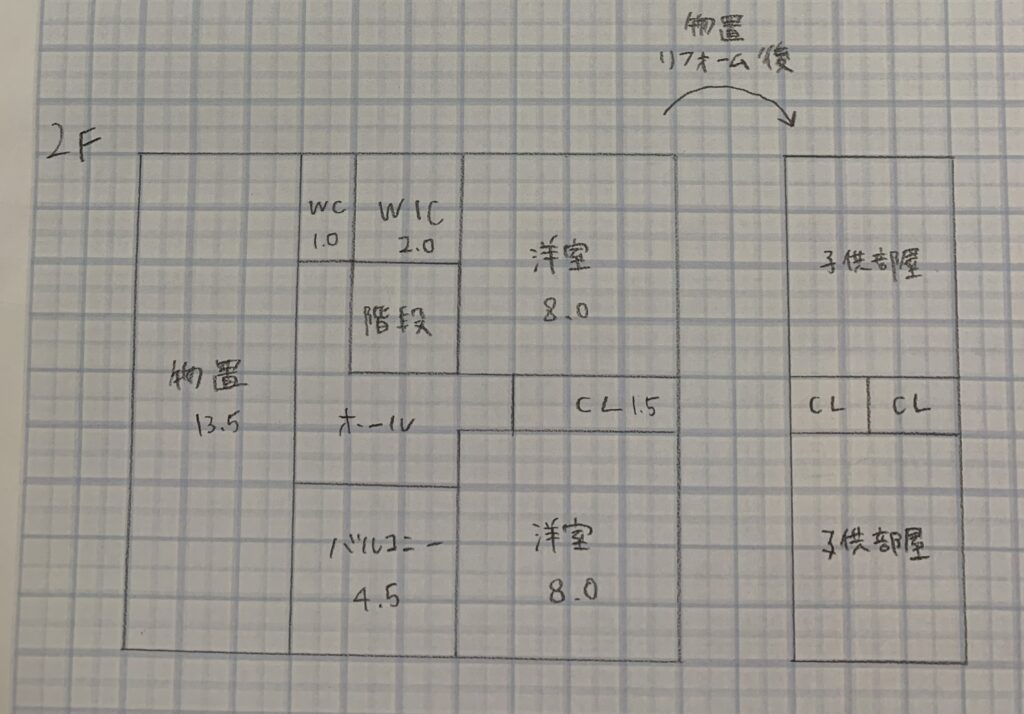 物置
リフォーム後
2F
WC
1.0
WIC
2.0
洋室
8.0
階段
物置
13.5
ホール
CL 1.5
バルコニー
4.5
洋室
8.0
子供部屋
CL
CL
子供部屋